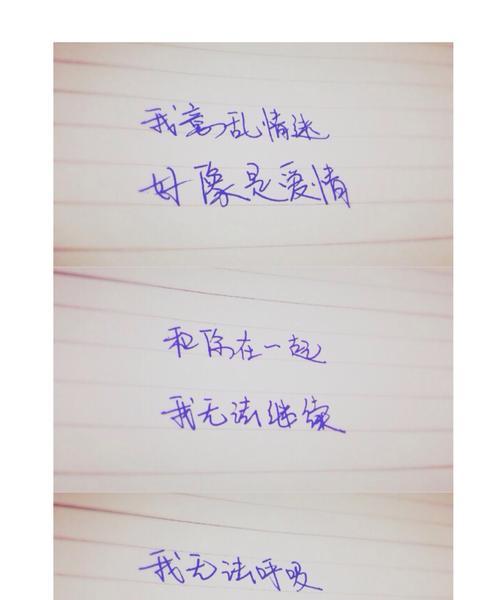 我意乱情迷
好像是爱情
和你在一起
我无法继续
我无法呼吸